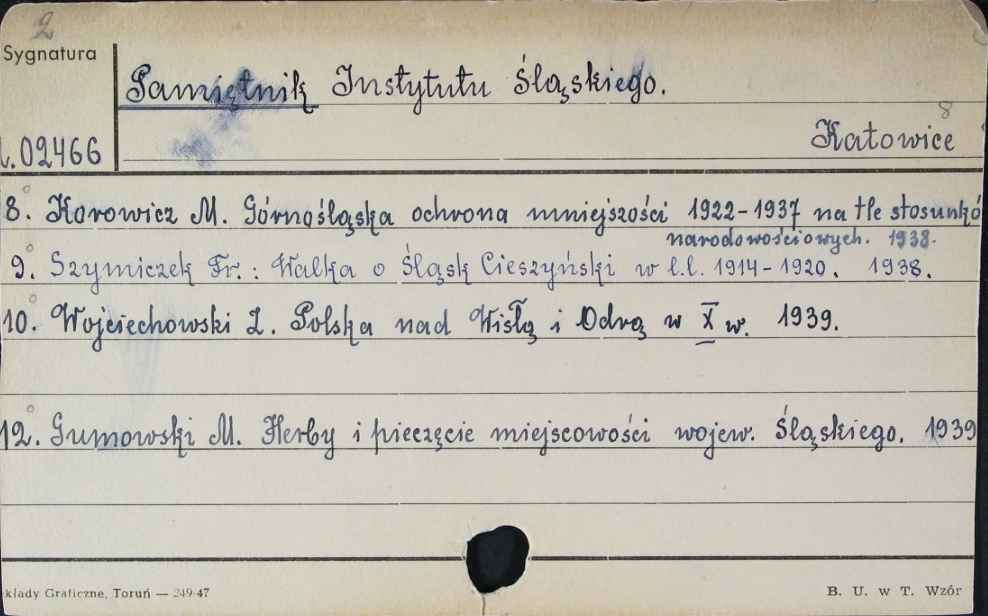 2
Sygnatura
Pamiętnik Instytutu Śląskiego.
8
Katowice
.02466
8. Korowicz M. Górnośląska ochrona mniejszości 1922-1937 na tle stosunkó
narodowościowych. 1938.
9. Szymiczek Fr.: Walka o Śląsk Cieszyński w l.l. 1914-1920. 1938.
10. Wojciechowski Z. Polska nad Wisłą i Odrą w X w. 1939.
12. Gumowski M. Herby i pieczęcie miejscowości wojew. Śląskiego. 1939
kłady Graficzne, Toruń — 249-47
B. U. w T. Wzór